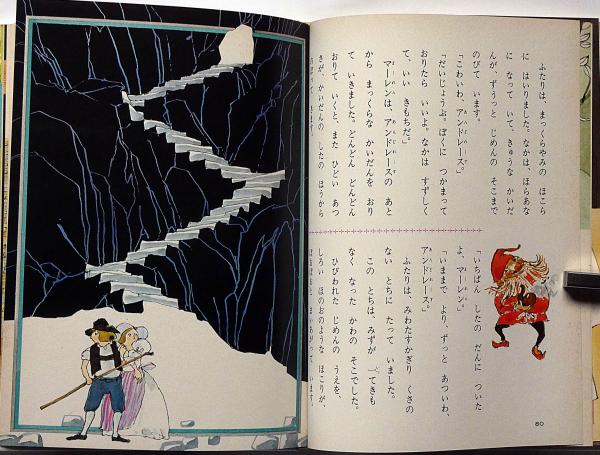 ふたりは、まっくらやみの ほこら
に はいりました。なかは、ほらあな
に なって いて、きゅうな かいだ
んが、ずうっと じめんの そこまで
のびて います。
「こわいわ、アンドレース。」
「だいじょうぶ。ぼくに つかまって
おりたら いいよ。なかは すずしく
て、いい きもちだ。」
マーレンは、アンドレースの あと
から まっくらな かいだんを おり
て いきました。どんどん どんどん
おりて いくと、また ひどい あつ
さが、かいだんの したの ほうから
「いちばん したの だんに ついた
よ、マーレン。」
「いままで より、ずっと あついわ、
アンドレース。」
ふたりは、みわたすかぎり くさの
ない とちに たって いました。
この とちは、みずが 一てきも
なく なった かわの そこでした。
ひびわれた じめんの うえを、
しろい ほのおのような ほこりが、
まいあがって います。
80